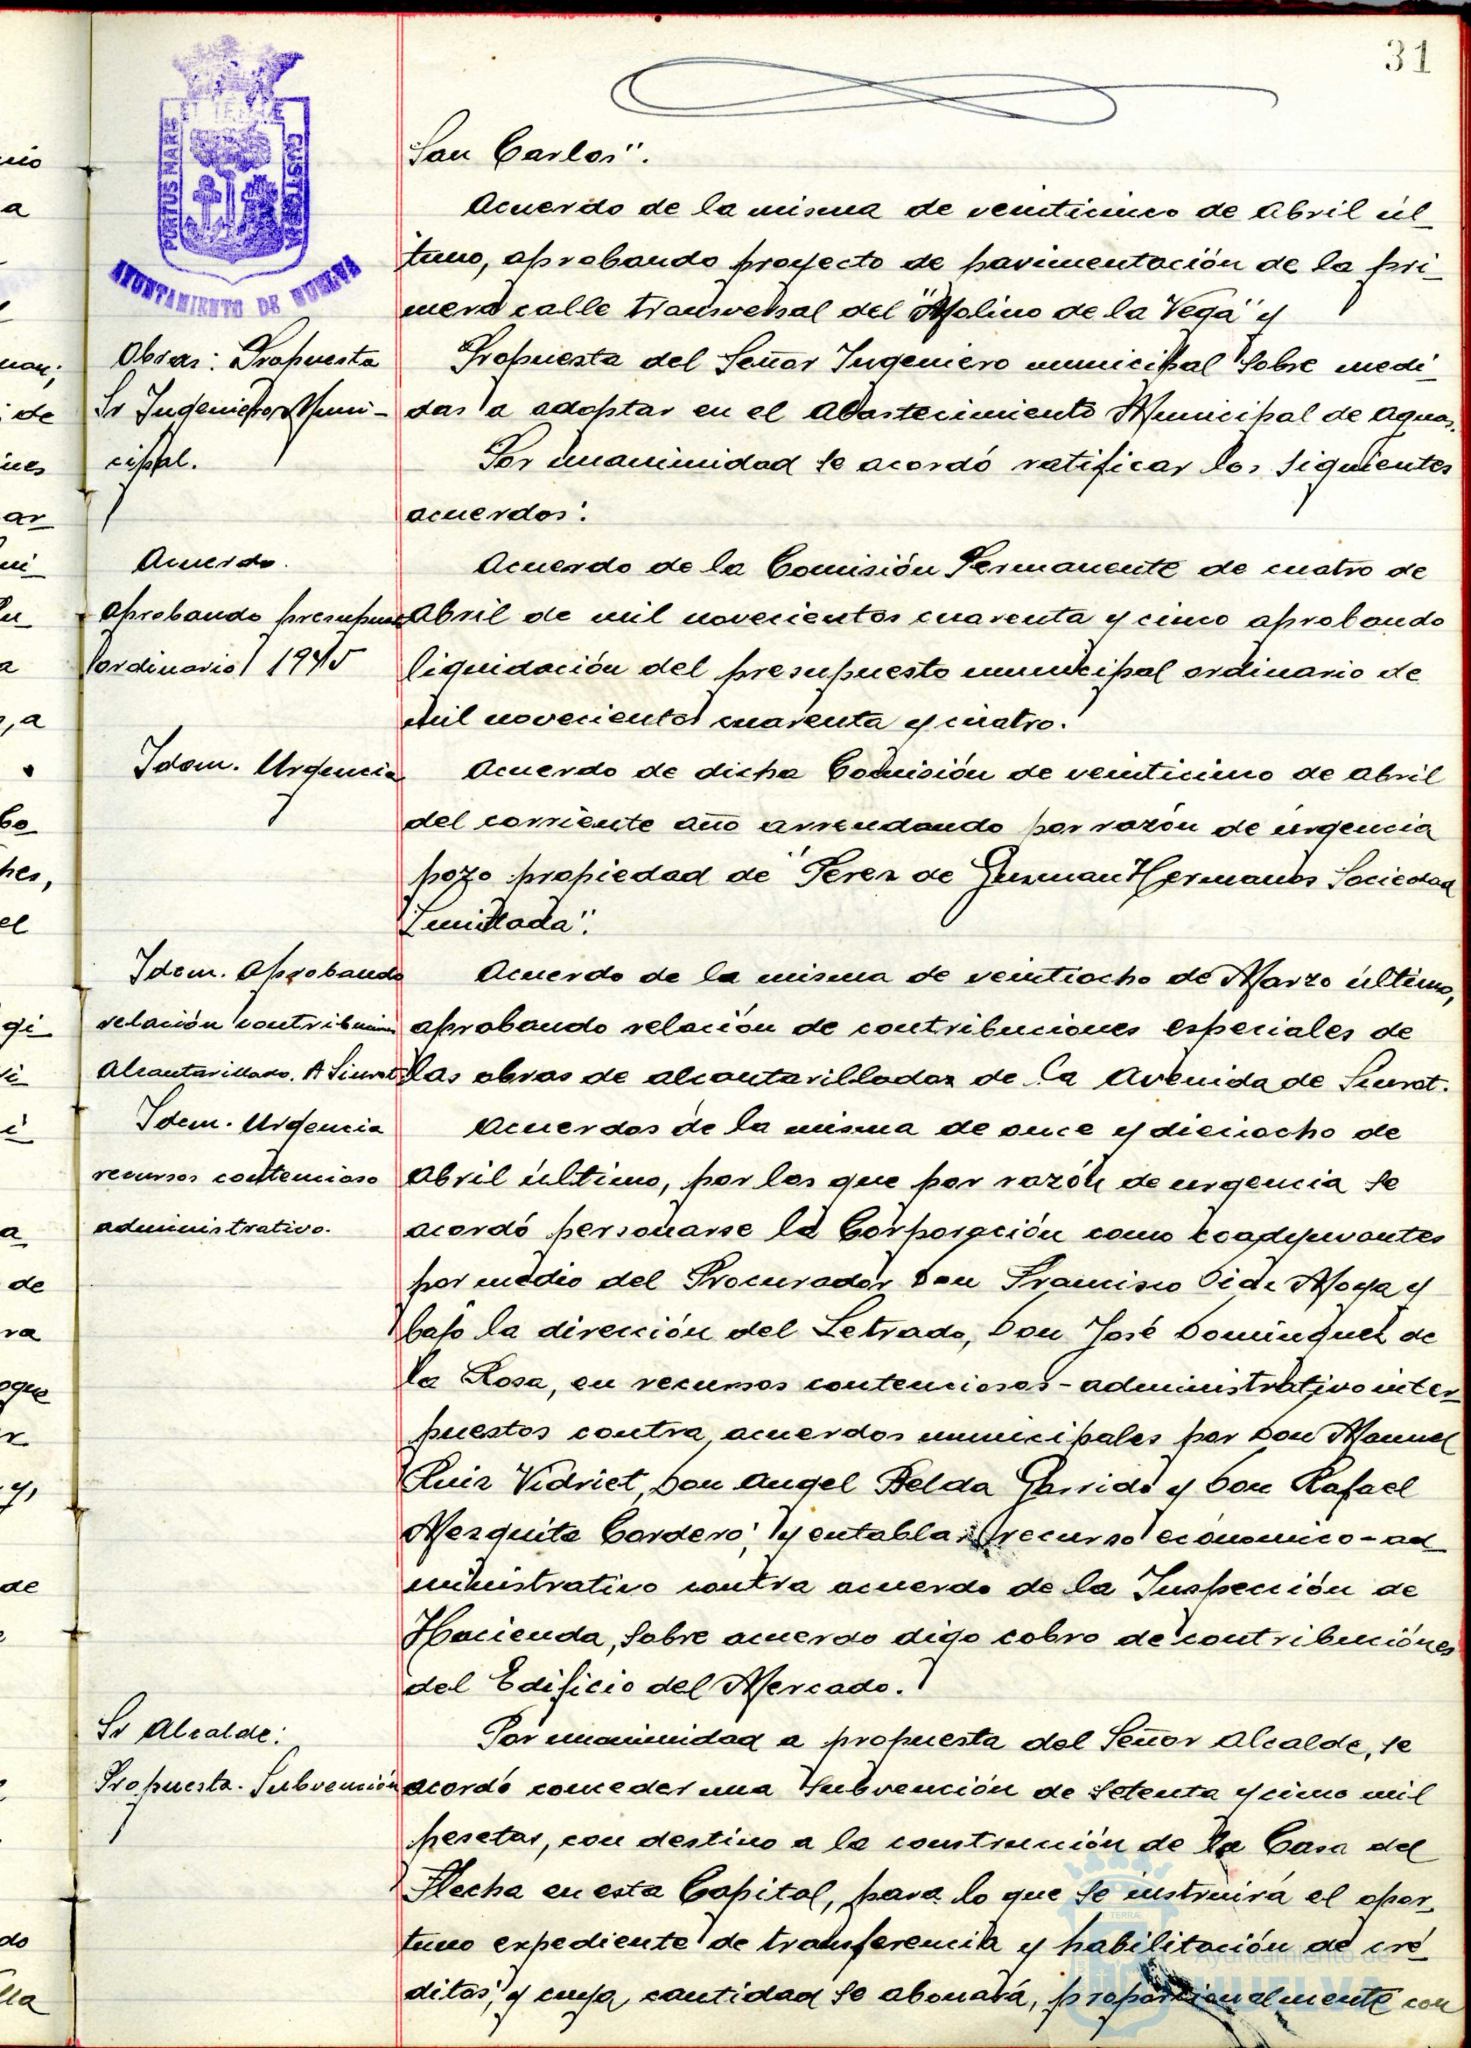 31
PORTUS MARIS ET TERRAE CUSTODIA
AYUNTAMIENTO DE HUELVA
San Carlos".
Acuerdo de la misma de veinticinco de Abril úl-
timo, aprobando proyecto de pavimentación de la pri-
mera calle transversal del "Molino de la Vega" y
Obras: Propuesta
Sr Ingeniero Muni-
cipal.
Propuesta del Señor Ingeniero municipal sobre medi-
das a adoptar en el Abastecimiento Municipal de Aguas.
Por unanimidad se acordó ratificar los siguientes
acuerdos:
Acuerdo.
aprobando presupues
ordinario 1945
Acuerdo de la Comisión Permanente de cuatro de
Abril de mil novecientos cuarenta y cinco aprobando
liquidación del presupuesto municipal ordinario de
mil novecientos cuarenta y cuatro.
Idem. Urgencia
Acuerdo de dicha Comisión de veinticinco de Abril
del corriente año arrendando por razón de úrgencia
pozo propiedad de "Perez de Guzman Hermanos Sociedad
Limitada".
Idem. Aprobando
relación contribuciones
Alcantarillado. A
Acuerdo de la misma de veintiocho de Marzo último,
aprobando relación de contribuciones especiales de
las obras de alcantarillados de la Avenida de
Idem. Urgencia
recursos contencioso
administrativo.
Acuerdos de la misma de once y dieciocho de
Abril último, por los que por razón de urgencia se
acordó personarse la Corporación como coadyuvantes
por medio del Procurador Don Francisco Moya y
bajo la dirección del Letrado, Don José Domínguez de
la Rosa, en recursos contenciosos-administrativo inter-
puestos contra acuerdos municipales por Don Manuel
Ruiz Vidriet, Don Angel Belda Garrido y Don Rafael
Mezquita Cordero; y entablar recurso económico-ad-
ministrativo contra acuerdo de la Inspección de
Hacienda, sobre acuerdo digo cobro de contribuciónes
del Edificio del Mercado.
Sr Alcalde:
Propuesta. Subvención
Por unanimidad a propuesta del Señor Alcalde, se
acordó conceder una subvención de setenta y cinco mil
pesetas, con destino a la construcción de la Casa del
Flecha en esta Capital, para lo que se instruirá el opor-
tuno expediente de transferencia y habilitación de cré-
ditos; y cuya cantidad se abonará, proporcionalmente con
Ayuntamiento de
HUELVA